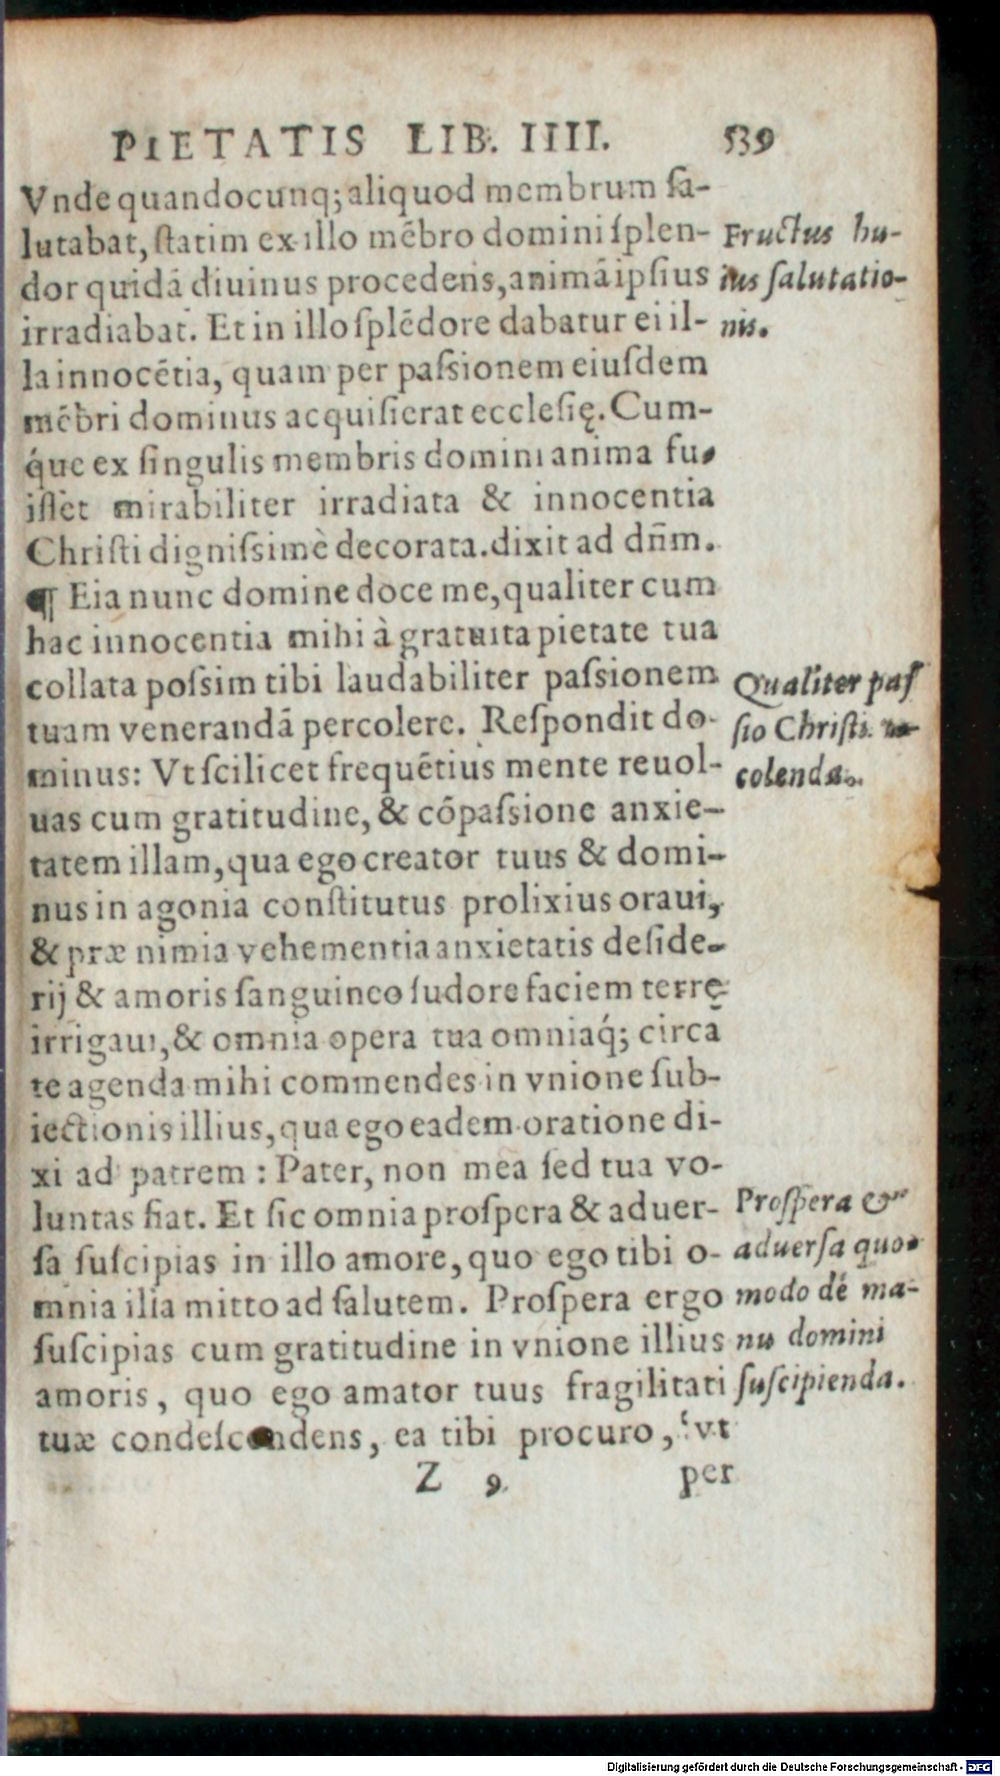 PIETATIS LIB. IIII. 539
Vnde quandocunq; aliquod membrum ſa-
lutabat, ſtatim ex illo mẽbro domini ſplen-
dor quidã diuinus procedens, animã ipſius
irradiabat. Et in illo ſplẽdore dabatur ei il-
la innocẽtia, quam per paſsionem eiuſdem
mẽbri dominus acquiſierat eccleſię. Cum-
q́ue ex ſingulis membris domini anima fu-
iſſet mirabiliter irradiata & innocentia
Chriſti digniſsimè decorata. dixit ad dñm.
¶ Eia nunc domine doce me, qualiter cum
hac innocentia mihi à gratuita pietate tua
collata poſsim tibi laudabiliter paſsionem
tuam venerandã percolere. Reſpondit do-
minus: Vt ſcilicet frequẽtius mente reuol-
uas cum gratitudine, & cõpaſsione anxie-
tatem illam, qua ego creator tuus & domi-
nus in agonia conſtitutus prolixius oraui,
& præ nimia vehementia anxietatis deſide-
rij & amoris ſanguineo ſudore faciem terrę
irrigaui, & omnia opera tua omniaq́; circa
te agenda mihi commendes in vnione ſub-
iectionis illius, qua ego eadem oratione di-
xi ad patrem : Pater, non mea ſed tua vo-
luntas fiat. Et ſic omnia proſpera & aduer-
ſa ſuſcipias in illo amore, quo ego tibi o-
mnia illa mitto ad ſalutem. Proſpera ergo
ſuſcipias cum gratitudine in vnione illius
amoris, quo ego amator tuus fragilitati
tuæ condeſcendens, ea tibi procuro, vt
Z 9 per
Fructus hu-
ius ſalutatio-
nis.
Qualiter paſ
ſio Chriſti
colenda.
Proſpera &
aduerſa quo-
modo de ma-
nu domini
ſuſcipienda.
Digitalisierung gefördert durch die Deutsche Forschungsgemeinschaft - DFG